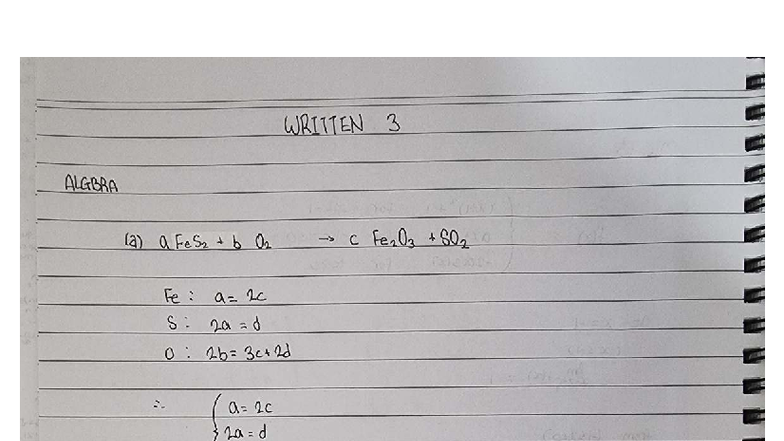 WRITTEN 3
ALGBRA
(a) a FeS₂ + b O₂ → c Fe₂O₃ + SO₂
Fe : a = 2c
S : 2a = d
O : 2b = 3c + 2d
∴ { a = 2c
2a = d